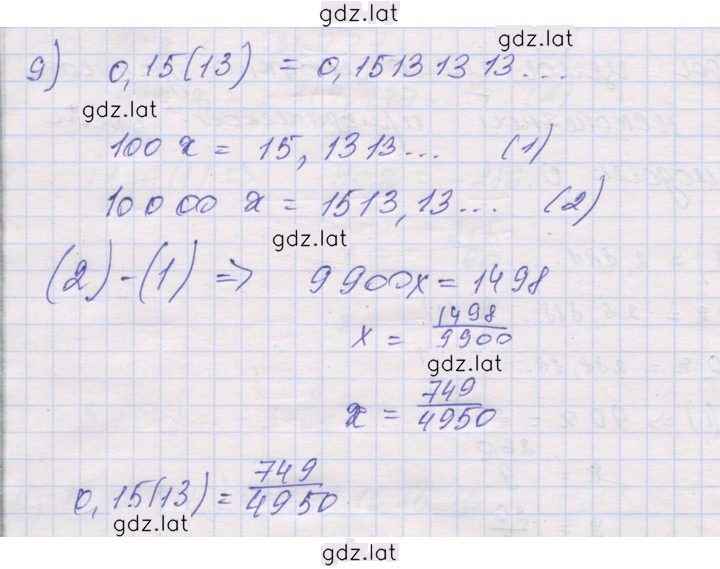 gdz.lat
gdz.lat
9) 0,15(13) = 0,15131313...
gdz.lat
100 x = 15,1313... (1)
10000 x = 1513,13... (2)
gdz.lat
(2)-(1) => 9900x = 1498
x = 1498/9900
gdz.lat
x = 749/4950
0,15(13) = 749/4950
gdz.lat
gdz.lat